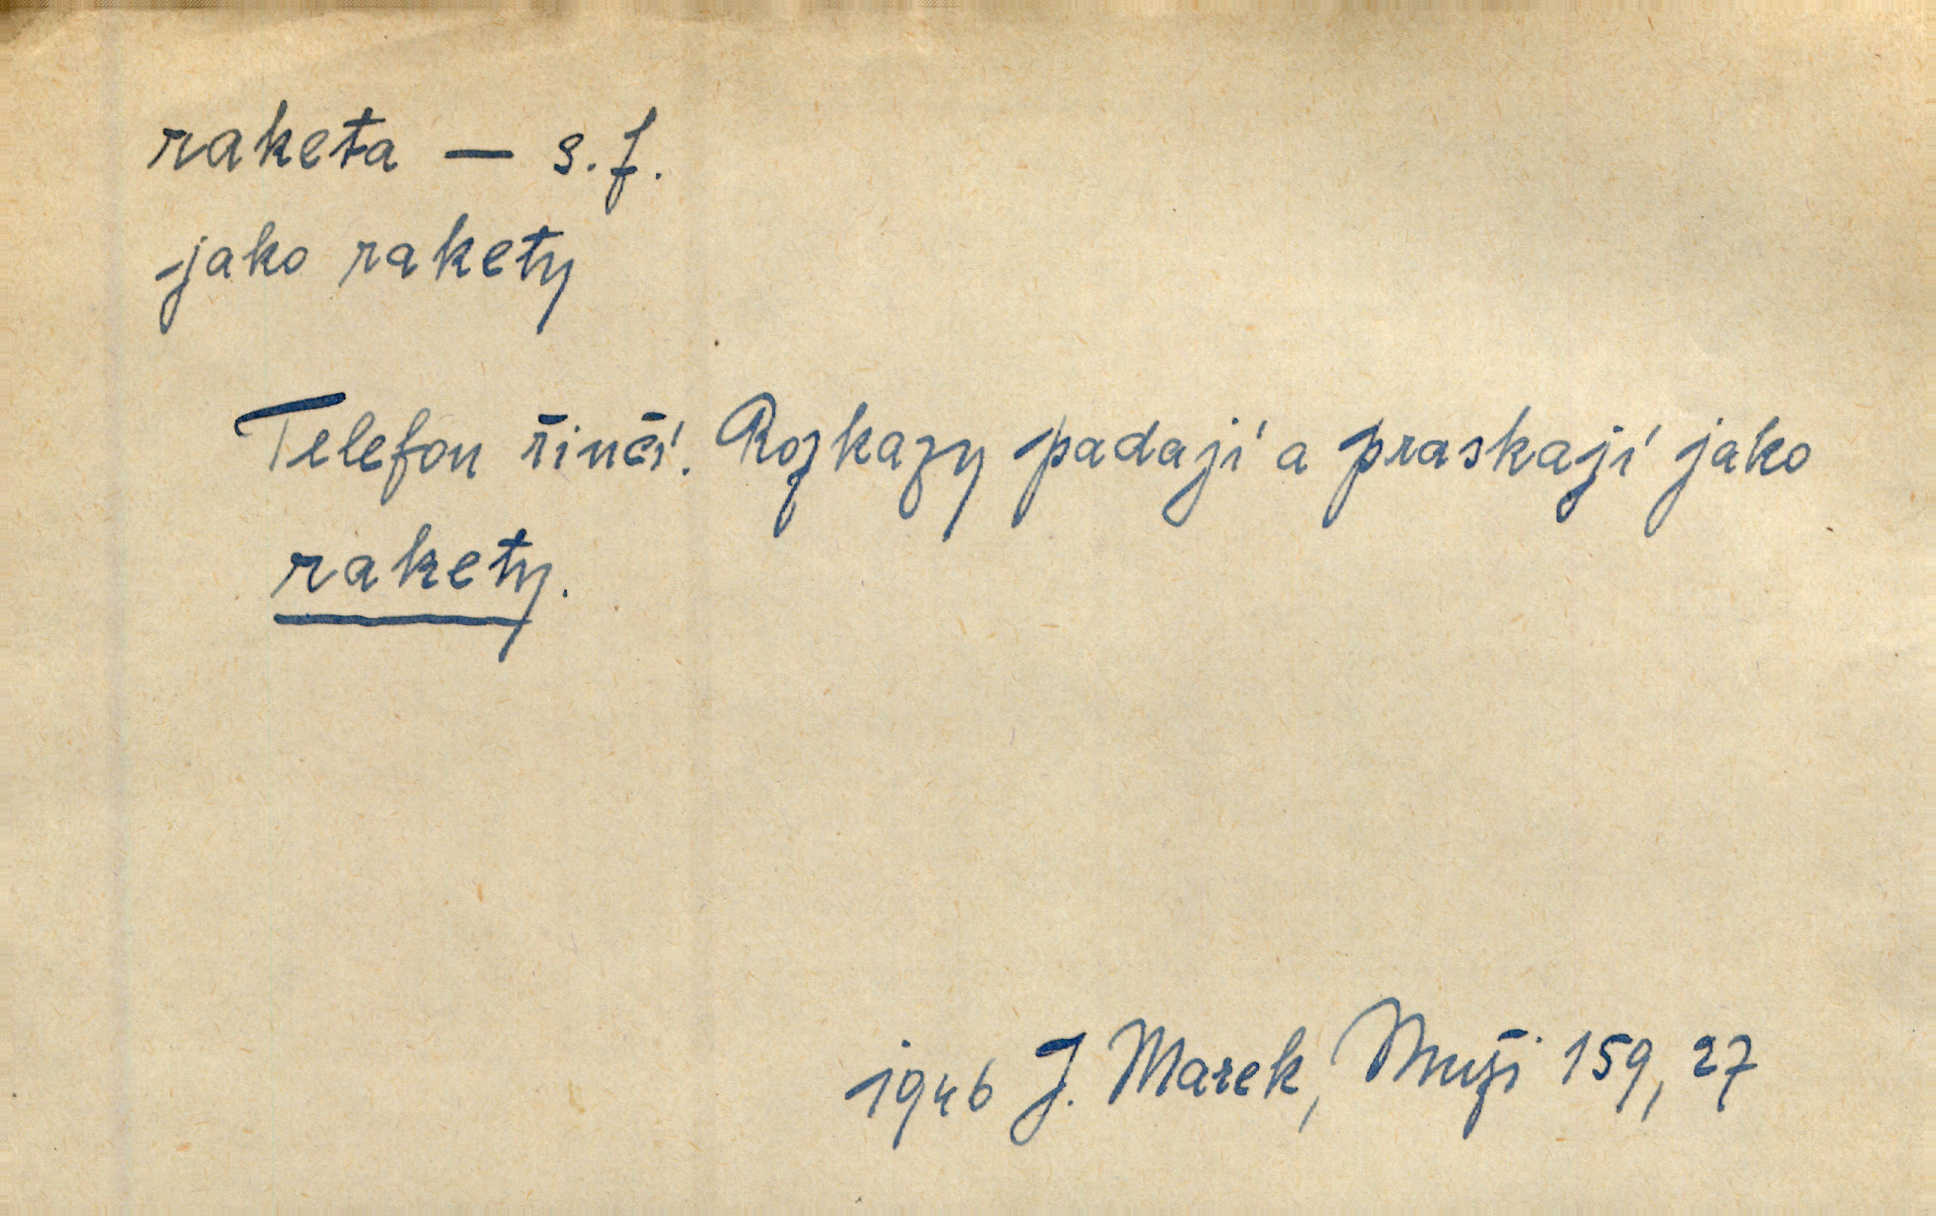 raketa — s. f.
jako rakety
Telefon řinčí. Rozkazy padají a praskají jako
rakety.
1946 J. Marek, Muži 159, 27